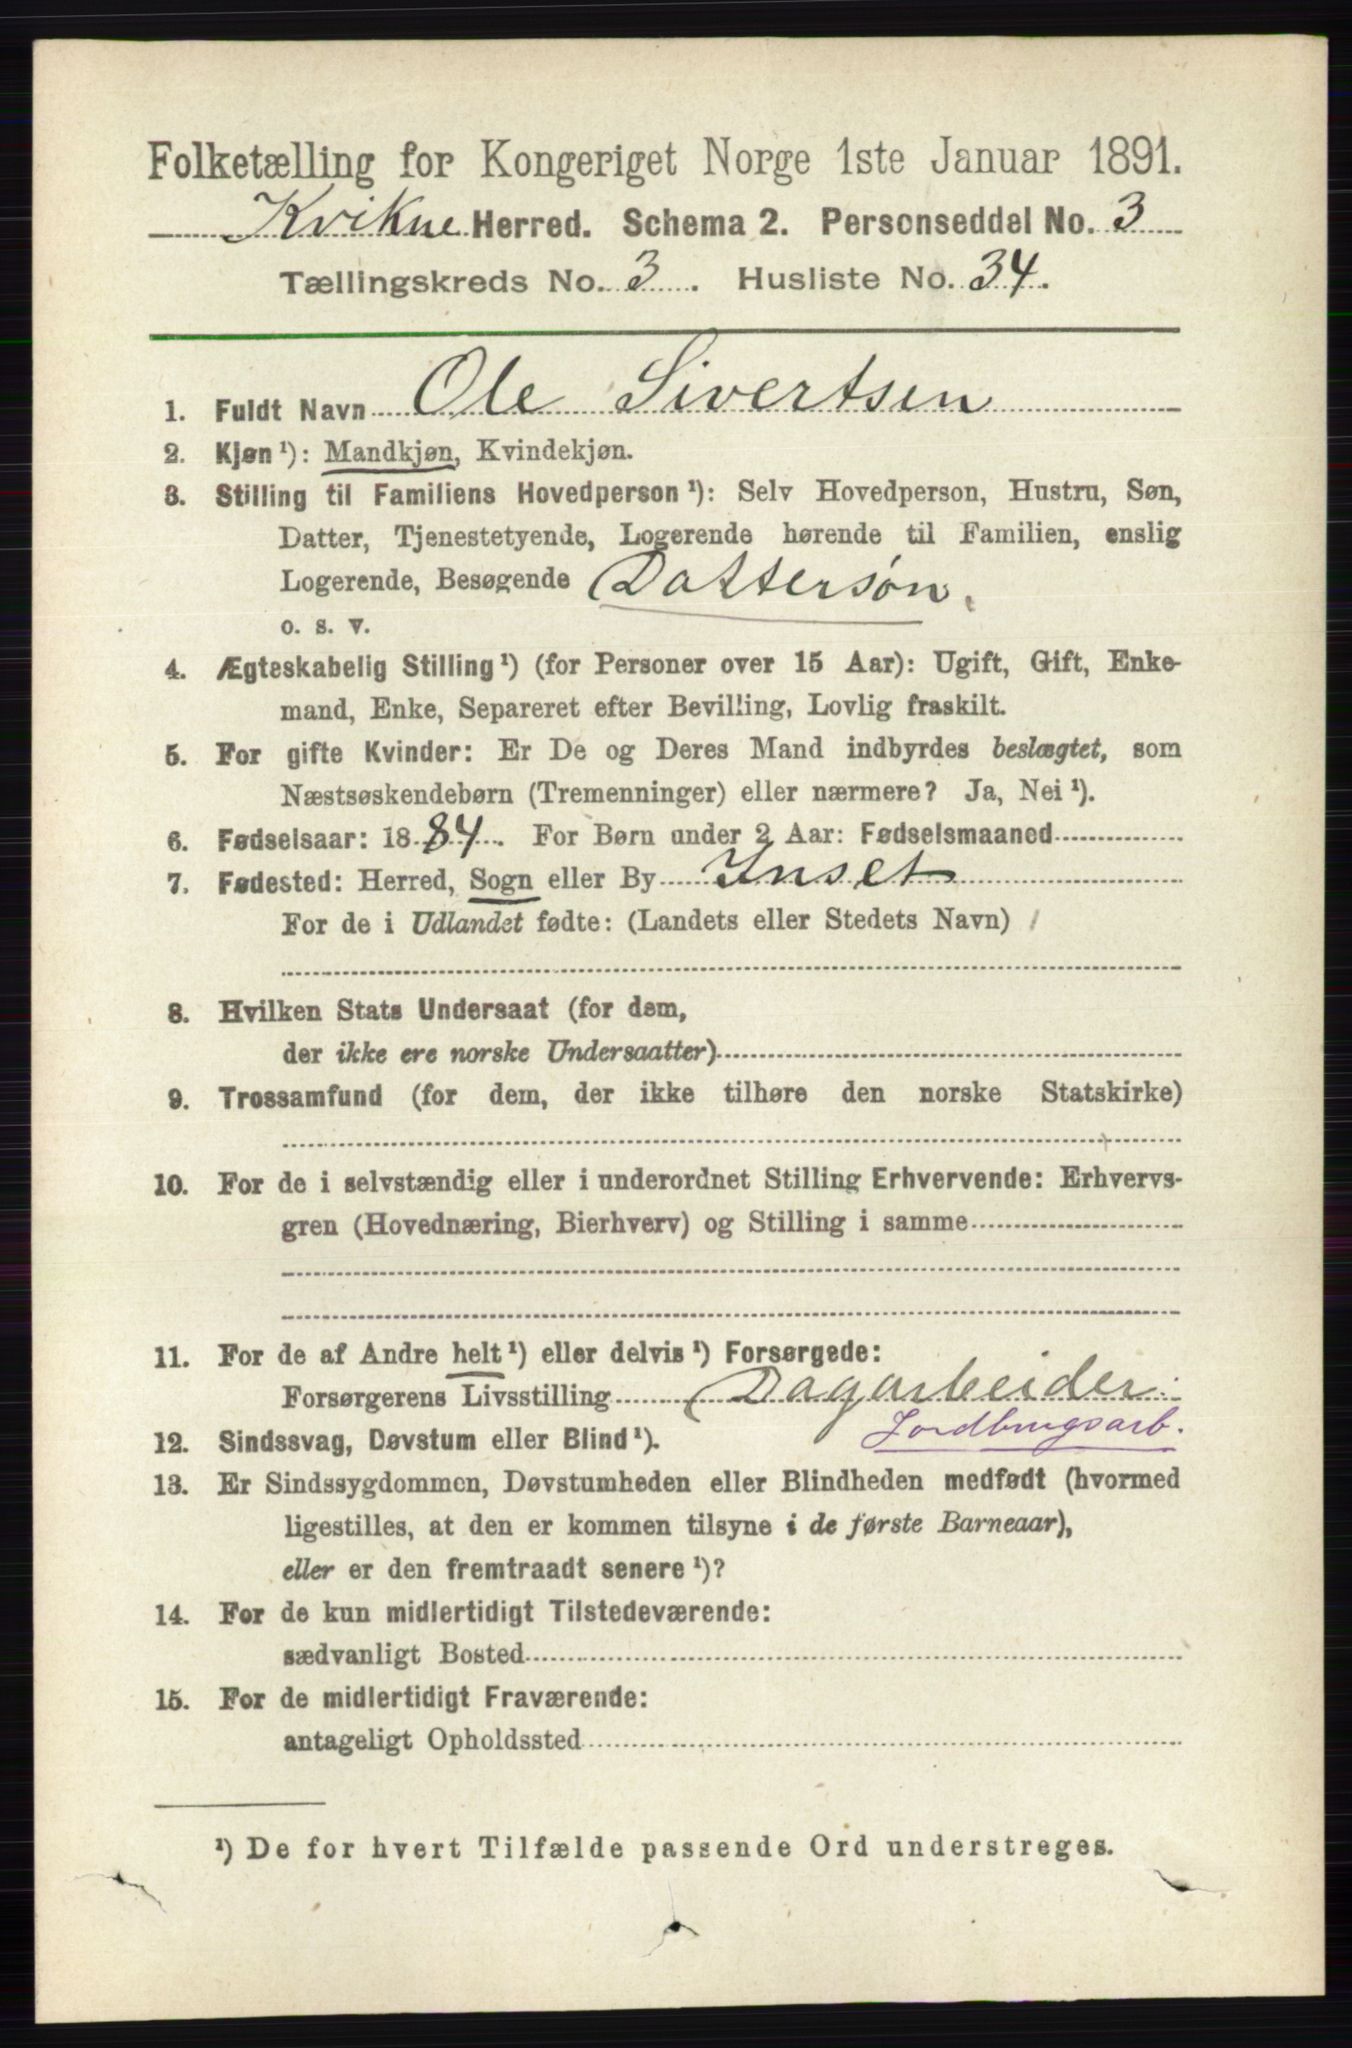 Folketælling for Kongeriget Norge 1ste Januar 1891.
Kvikne Herred. Schema 2. Personseddel No. 3
Tællingskreds No. 3. Husliste No. 34.
1. Fuldt Navn Ole Sivertsen
2. Kjøn ¹): Mandkjøn, Kvindekjøn.
3. Stilling til Familiens Hovedperson ¹): Selv Hovedperson, Hustru, Søn,
Datter, Tjenestetyende, Logerende hørende til Familien, enslig
Logerende, Besøgende Dattersøn.
o. s. v.
4. Ægteskabelig Stilling ¹) (for Personer over 15 Aar): Ugift, Gift, Enke-
mand, Enke, Separeret efter Bevilling, Lovlig fraskilt.
5. For gifte Kvinder: Er De og Deres Mand indbyrdes beslægtet, som
Næstsøskendebørn (Tremenninger) eller nærmere? Ja, Nei ¹).
6. Fødselsaar: 1884. For Børn under 2 Aar: Fødselsmaaned
7. Fødested: Herred, Sogn eller By Inset
For de i Udlandet fødte: (Landets eller Stedets Navn)
8. Hvilken Stats Undersaat (for dem,
der ikke ere norske Undersaatter)
9. Trossamfund (for dem, der ikke tilhøre den norske Statskirke)
10. For de i selvstændig eller i underordnet Stilling Erhvervende: Erhvervs-
gren (Hovednæring, Bierhverv) og Stilling i samme
11. For de af Andre helt ¹) eller delvis ¹) Forsørgede:
Forsørgerens Livsstilling Dagarbeider.
Jordbrugsarb.
12. Sindssvag, Døvstum eller Blind ¹).
13. Er Sindssygdommen, Døvstumheden eller Blindheden medfødt (hvormed
ligestilles, at den er kommen tilsyne i de første Barneaar),
eller er den fremtraadt senere ¹)?
14. For de kun midlertidigt Tilstedeværende:
sædvanligt Bosted
15. For de midlertidigt Fraværende:
antageligt Opholdssted
¹) De for hvert Tilfælde passende Ord understreges.